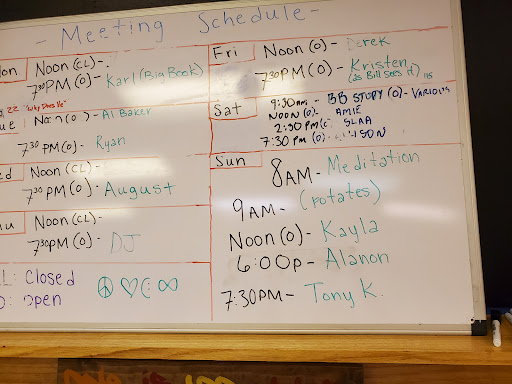 - Meeting Schedule -
on
Noon (CL) -
7:30PM (O) - Karl (Big Book)
22 "Why Does He"
ue
Noon (O) - Al Baker
7:30 PM (O) - Ryan
ed
Noon (CL) -
7:30 PM (O) - August
u
Noon (CL) -
7:30PM (O) - DJ
L: Closed
O: Open
Fri
Noon (O) - Derek
7:30PM (O) - Kristen
(as Bill Sees it)
Sat
9:30am - BB STUDY (O) - VARIOUS
NOON (O) - AMIE
2:30 PM (C) SLAA
7:30 PM (O) -
Sun
8AM - Meditation
9AM - (rotates)
Noon (O) - Kayla
6:00p - Alanon
7:30PM - Tony K.